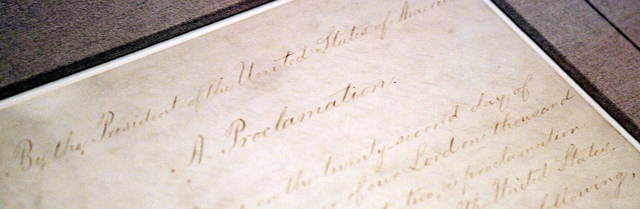 By the President of the United States of Americ
A Proclamation.
on the twenty-second day of
of our Lord one thousand
two, a proclamation
United States,
following,